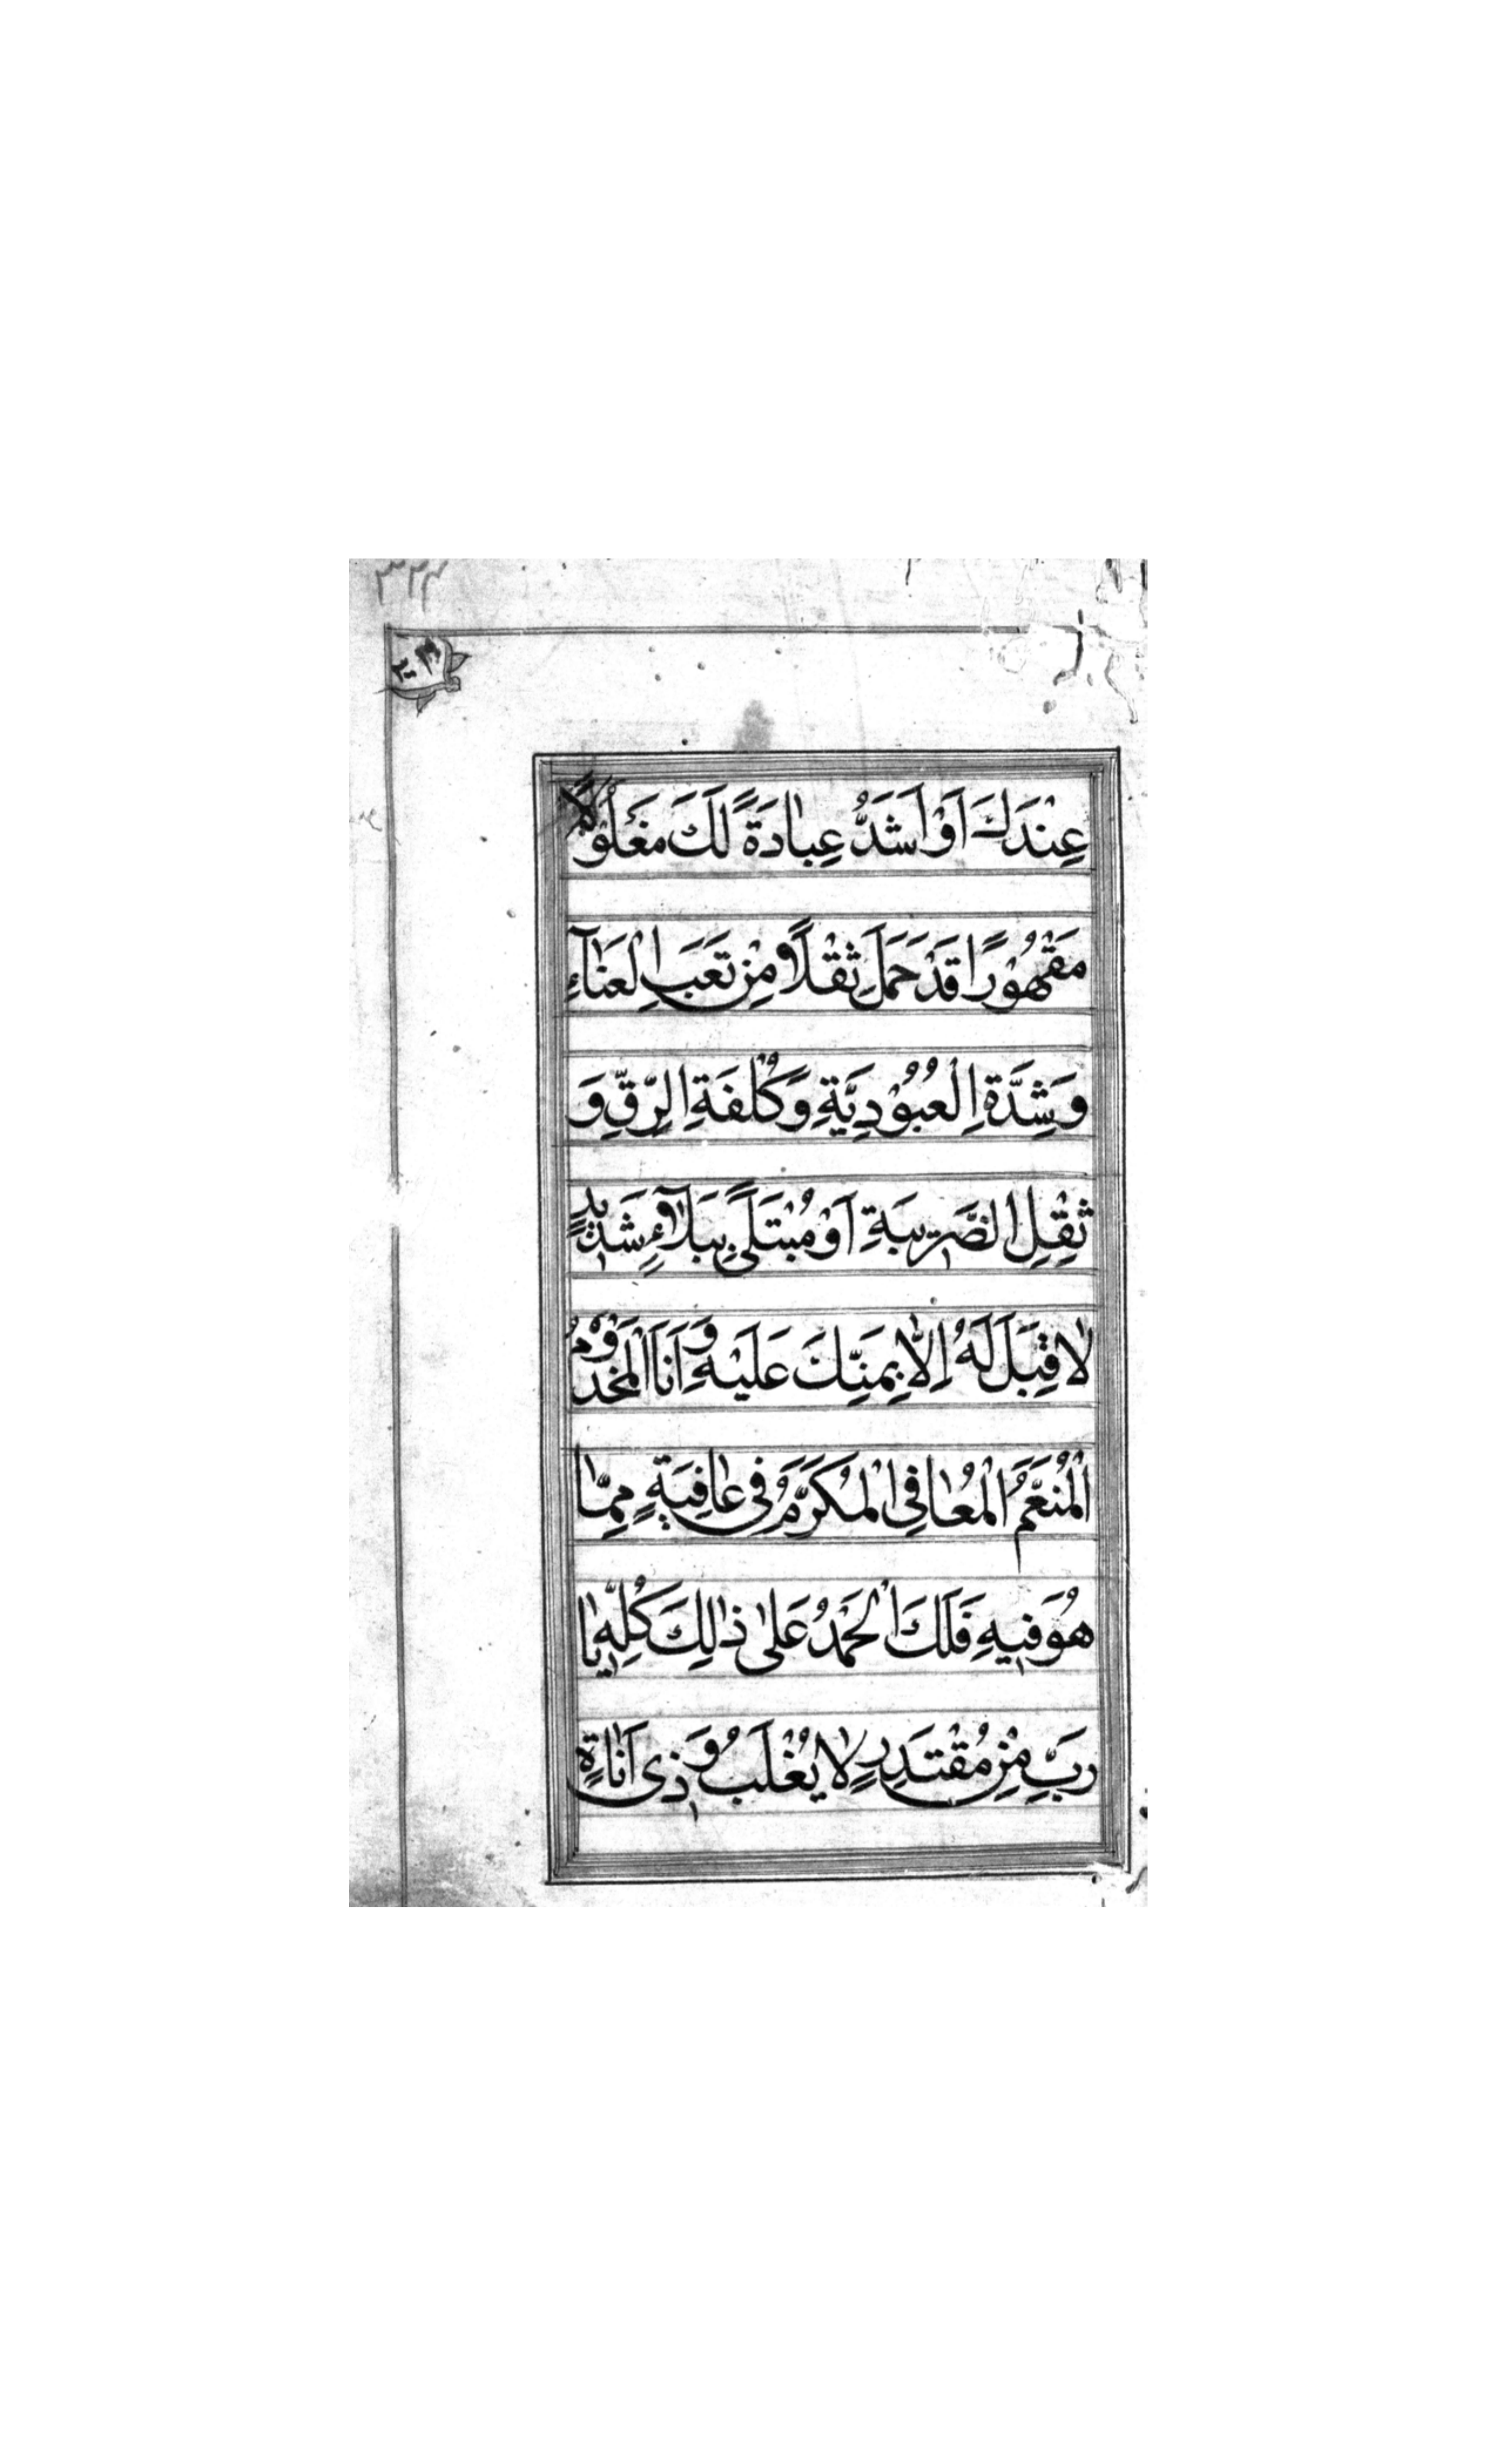 ۳۲۴
عِنْدَكَ اَوْ اَشَدُّ عِبادَةً لَكَ مَغْلُوْلًا
مَقْهُوْرًا قَدْ حَمَلَ ثِقْلًا مِنْ تَعَبِ الْعَنٰآءِ
وَشِدَّةِ الْعُبُوْدِيَّةِ وَكُلْفَةِ الرِّقِّ وَ
ثِقْلِ الضَّرِيبَةِ اَوْ مُبْتَلًى بِبَلآءٍ شَدِيدٍ
لا قِبَلَ لَهُ اِلّا بِمَنِّكَ عَلَيْهِ وَ اَنَا الْمَخْدُوْمُ
الْمُنَعَّمُ الْمُعافِى الْمُكَرَّمُ فِى عافِيَةٍ مِمّا
هُوَ فِيهِ فَلَكَ الْحَمْدُ عَلىٰ ذٰلِكَ كُلِّهِ يا
رَبِّ مِنْ مُقْتَدِرٍ لا يُغْلَبُ وَ ذِى اَناةٍ